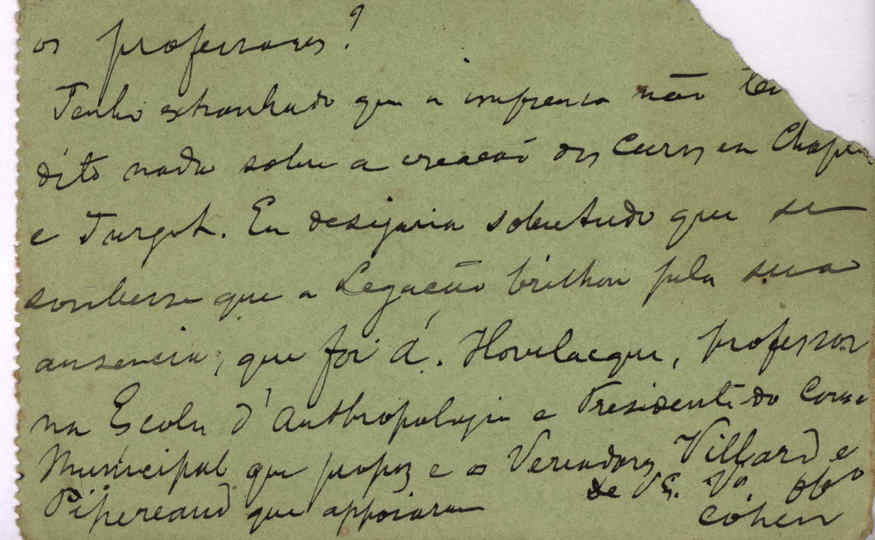 os professores?
Tenho extranhado que a imprensa não te
dito nada sobre a creacaõ dos Cursos em Chapt
e Turgot. Eu desejaria sobretudo que se
soubesse que a Legação brilhou pela sua
ausencia; que foi A. Hovelacque, professor
na Escola d'Anthropologia e Presidente do Conse
Municipal que propoz e os Vereadores Villard e
Pipereaud que appoiaram
de V. Vor Obo
Cohen